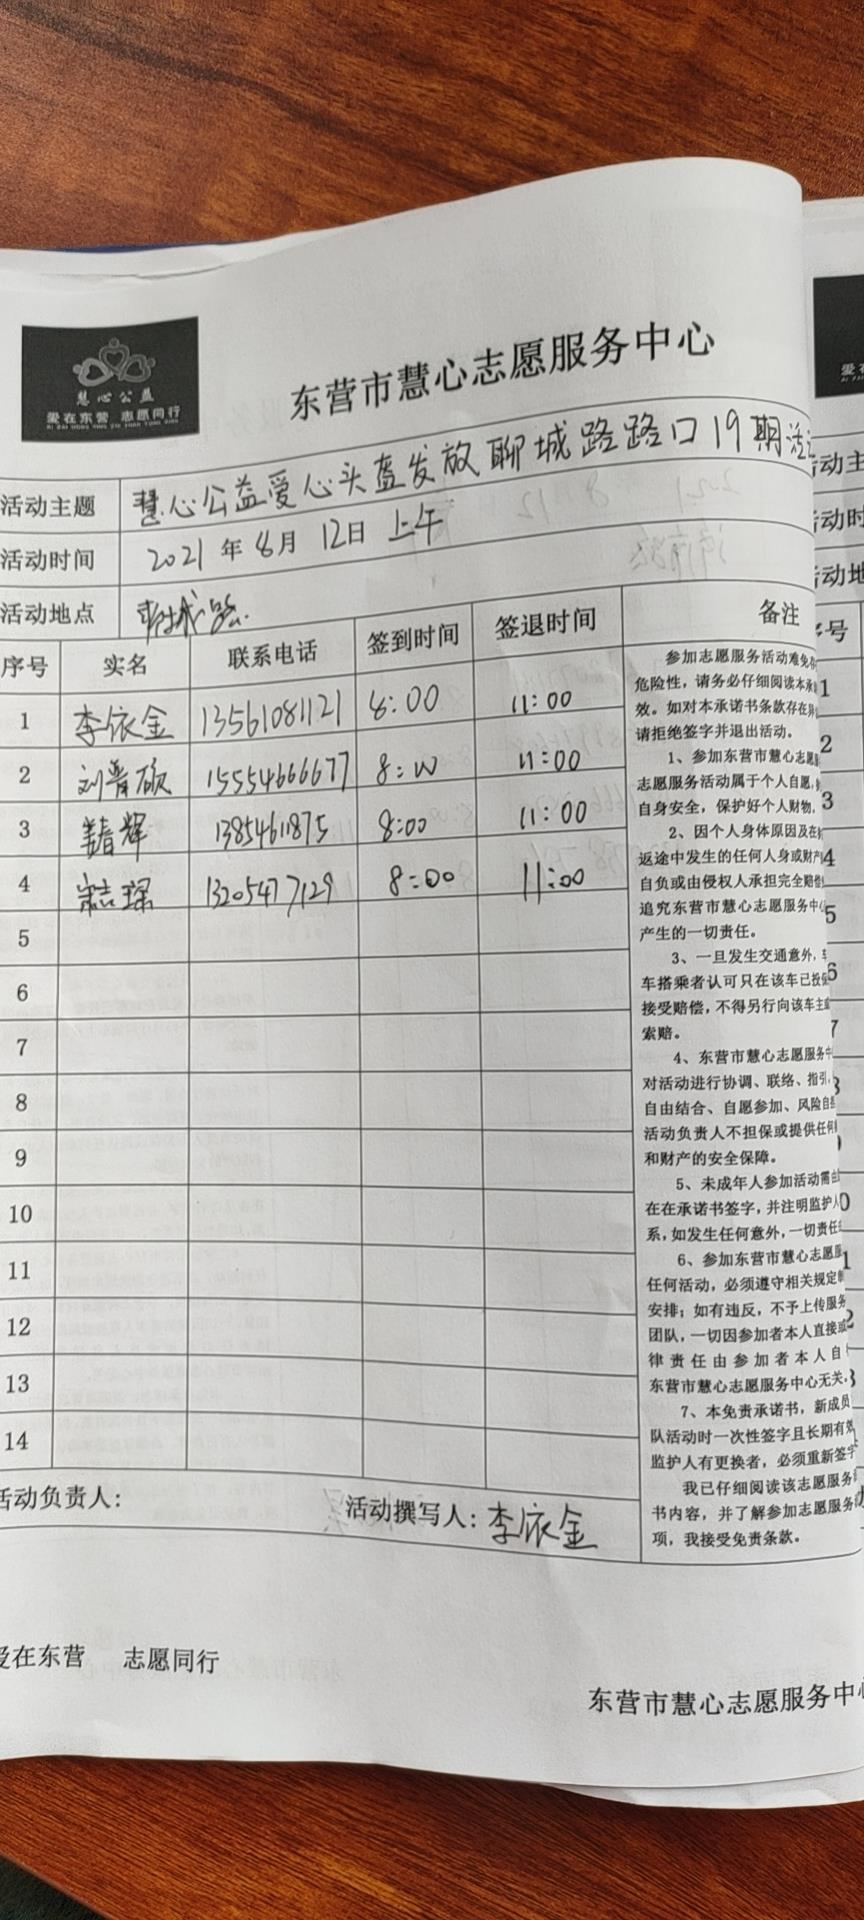 慧心公益
爱在东营 志愿同行
AI ZAI DONG YING ZHI YUAN TONG XING
东营市慧心志愿服务中心
活动主题 慧心公益爱心头盔发放聊城路路口19期活
活动时间 2021年8月12日上午
活动地点 聊城路
序号 实名 联系电话 签到时间 签退时间 备注
1 李依金 13561081121 8:00 11:00
2 刘晋硕 15554666677 8:00 11:00
3 辉 13854611875 8:00 11:00
4 琛 13205477129 8:00 11:00
5
6
7
8
9
10
11
12
13
14
参加志愿服务活动难免
危险性，请务必仔细阅读本承
效。如对本承诺书条款存在异
请拒绝签字并退出活动。
1、参加东营市慧心志愿
志愿服务活动属于个人自愿，
自身安全，保护好个人财物，
2、因个人身体原因及在
返途中发生的任何人身或财产
自负或由侵权人承担完全赔偿
追究东营市慧心志愿服务中心
产生的一切责任。
3、一旦发生交通意外，
车搭乘者认可只在该车已投保
接受赔偿，不得另行向该车主
索赔。
4、东营市慧心志愿服务中
对活动进行协调、联络、指引，
自由结合、自愿参加、风险自
活动负责人不担保或提供任何
和财产的安全保障。
5、未成年人参加活动需
在在承诺书签字，并注明监护人
系，如发生任何意外，一切责任
6、参加东营市慧心志愿服
任何活动，必须遵守相关规定
安排；如有违反，不予上传服务
团队，一切因参加者本人直接或
律责任由参加者本人自
东营市慧心志愿服务中心无关。
7、本免责承诺书，新成员
队活动时一次性签字且长期有效
监护人有更换者，必须重新签字
我已仔细阅读该志愿服务
书内容，并了解参加志愿服务
项，我接受免责条款。
活动负责人： 活动撰写人：李依金
爱在东营 志愿同行
东营市慧心志愿服务中心